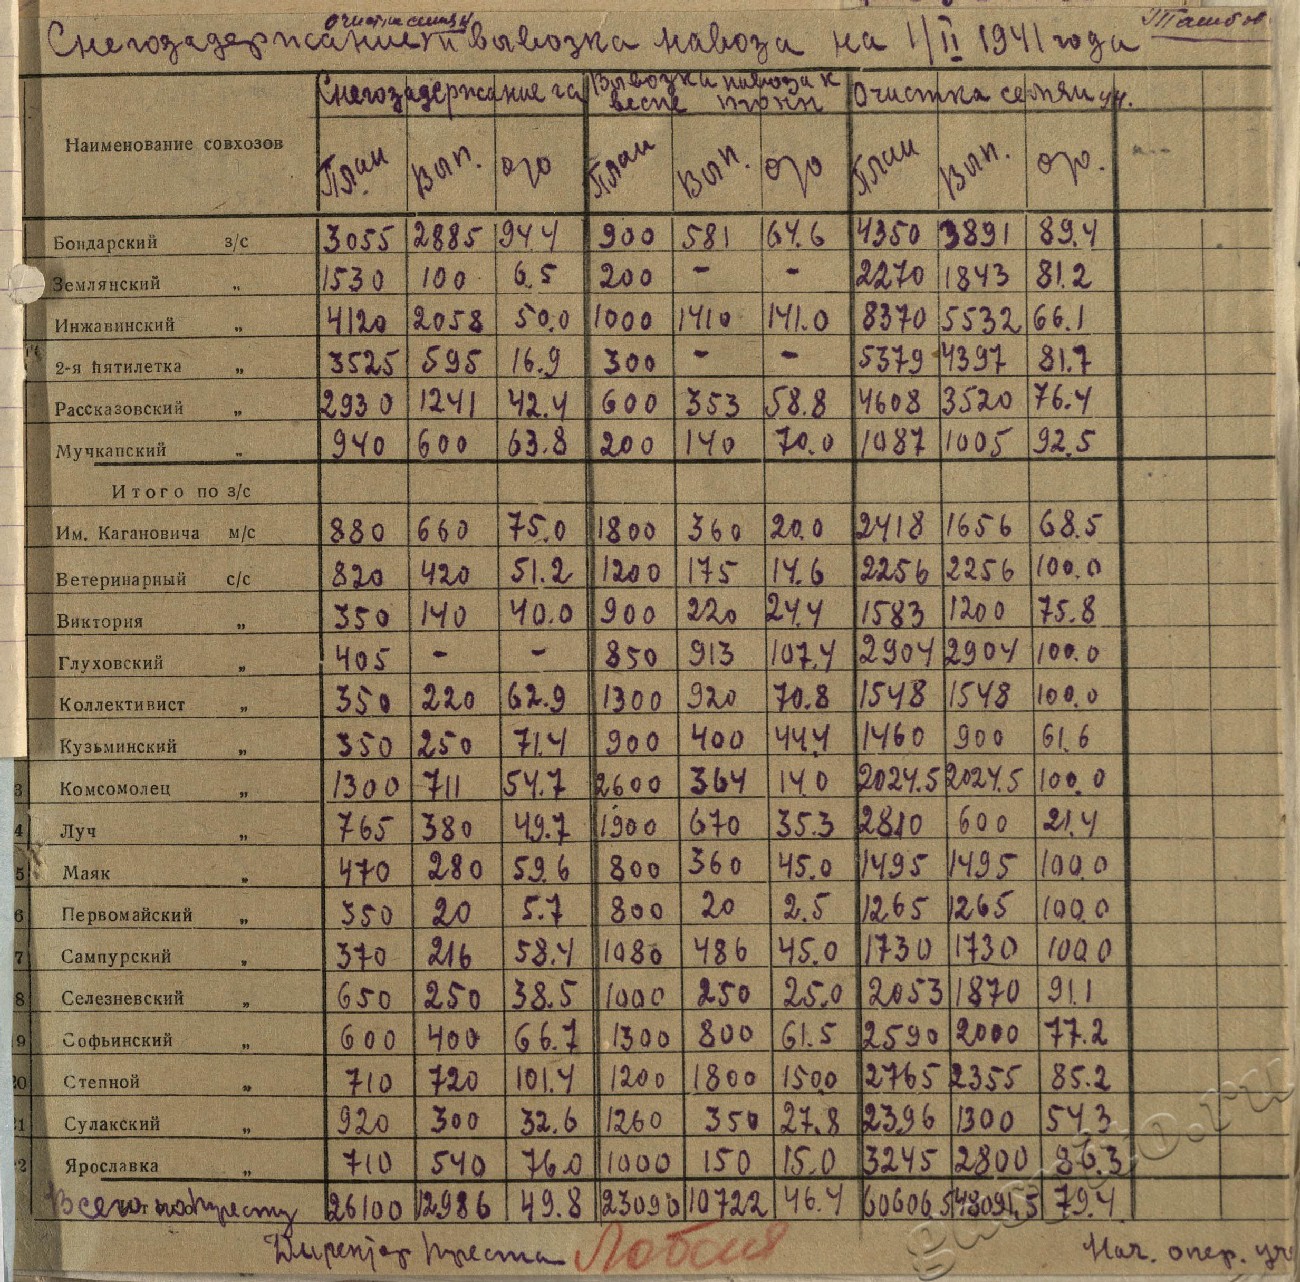 очистка семян
Снегозадержание и вывозка навоза на 1/II 1941 года
Снегозадержание га Вывозка навоза к весне тонн Очистка семян цн.
Наименование совхозов План Вып. о/о План Вып. о/о План Вып. о/о.
Бондарский з/с 3055 2885 94.4 900 581 64.6 4350 3891 89.4
Землянский „ 1530 100 6.5 200 - - 2270 1843 81.2
Инжавинский „ 4120 2058 50.0 1000 1410 141.0 8370 5532 66.1
2-я пятилетка „ 3525 595 16.9 300 - - 5379 4397 81.7
Рассказовский „ 2930 1241 42.4 600 353 58.8 4608 3520 76.4
Мучкапский „ 940 600 63.8 200 140 70.0 1087 1005 92.5
Итого по з/с
Им. Кагановича м/с 880 660 75.0 1800 360 20.0 2418 1656 68.5
Ветеринарный с/с 820 420 51.2 1200 175 14.6 2256 2256 100.0
Виктория „ 350 140 40.0 900 220 24.4 1583 1200 75.8
Глуховский „ 405 - - 850 913 107.4 2904 2904 100.0
Коллективист „ 350 220 62.9 1300 920 70.8 1548 1548 100.0
Кузьминский „ 350 250 71.4 900 400 44.4 1460 900 61.6
3 Комсомолец „ 1300 711 54.7 2600 364 14.0 2024.5 2024.5 100.0
4 Луч „ 765 380 49.7 1900 670 35.3 2810 600 21.4
5 Маяк „ 470 280 59.6 800 360 45.0 1495 1495 100.0
6 Первомайский „ 350 20 5.7 800 20 2.5 1265 1265 100.0
7 Сампурский „ 370 216 58.4 1080 486 45.0 1730 1730 100.0
8 Селезневский „ 650 250 38.5 1000 250 25.0 2053 1870 91.1
9 Софьинский „ 600 400 66.7 1300 800 61.5 2590 2000 77.2
20 Степной „ 710 720 101.4 1200 1800 150.0 2765 2355 85.2
21 Сулакский „ 920 300 32.6 1260 350 27.8 2396 1300 54.3
22 Ярославка „ 710 540 76.0 1000 150 15.0 3245 2800 86.3
Всего по тресту 26100 12986 49.8 23090 10722 46.4 60606.5 48091.5 79.4
Директор треста Нач. опер. уч